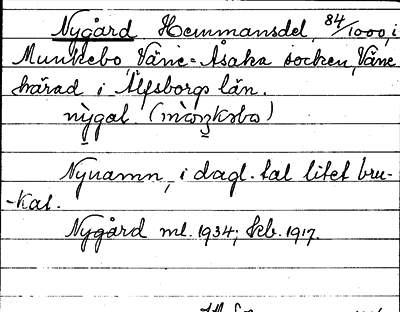 Nygård Hemmansdel, 84/1000, i
Munkebo, Väne-Åsaka socken, Väne
härad i Älfsborgs län.
nỳgaḷ (mòŋksbo)
Nynamn, i dagl. tal litet bru-
-kat.
Nygård ml. 1934; kb. 1917.